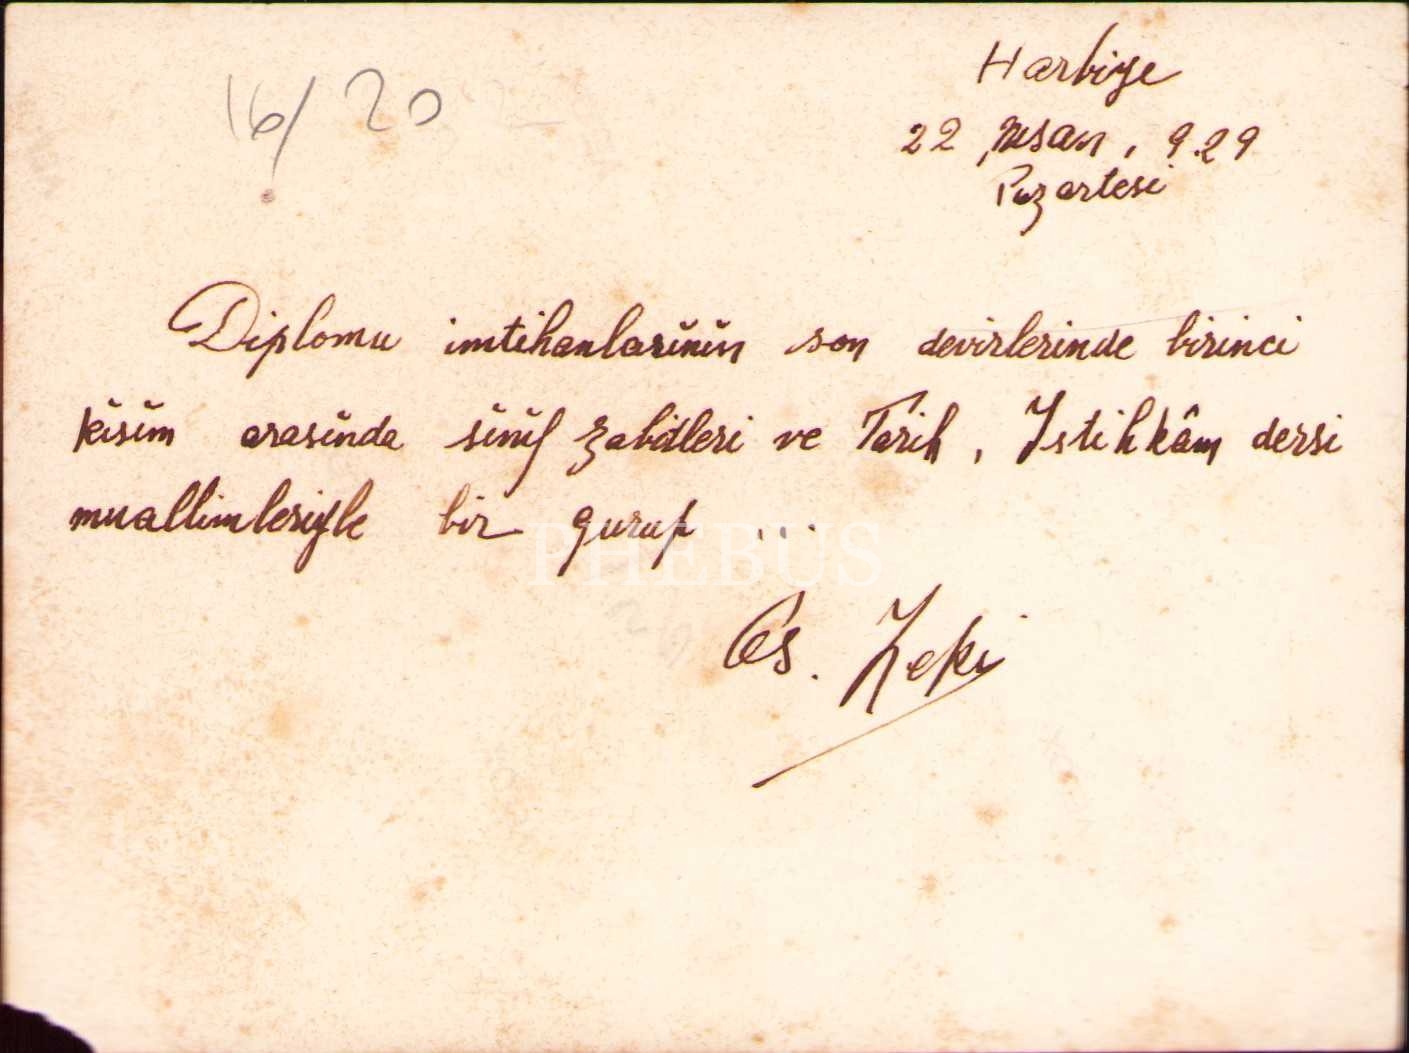 16/20
Harbiye
22 Nisan, 929
Pazartesi
Diploma imtihanlarĭnĭn son devirlerinde birinci
kĭsĭm arasĭnda sĭnĭf zabitleri ve Tarih, Istihkâm dersi
muallimleriyle bir gurup ...
PHEBUS
Os. Zeki